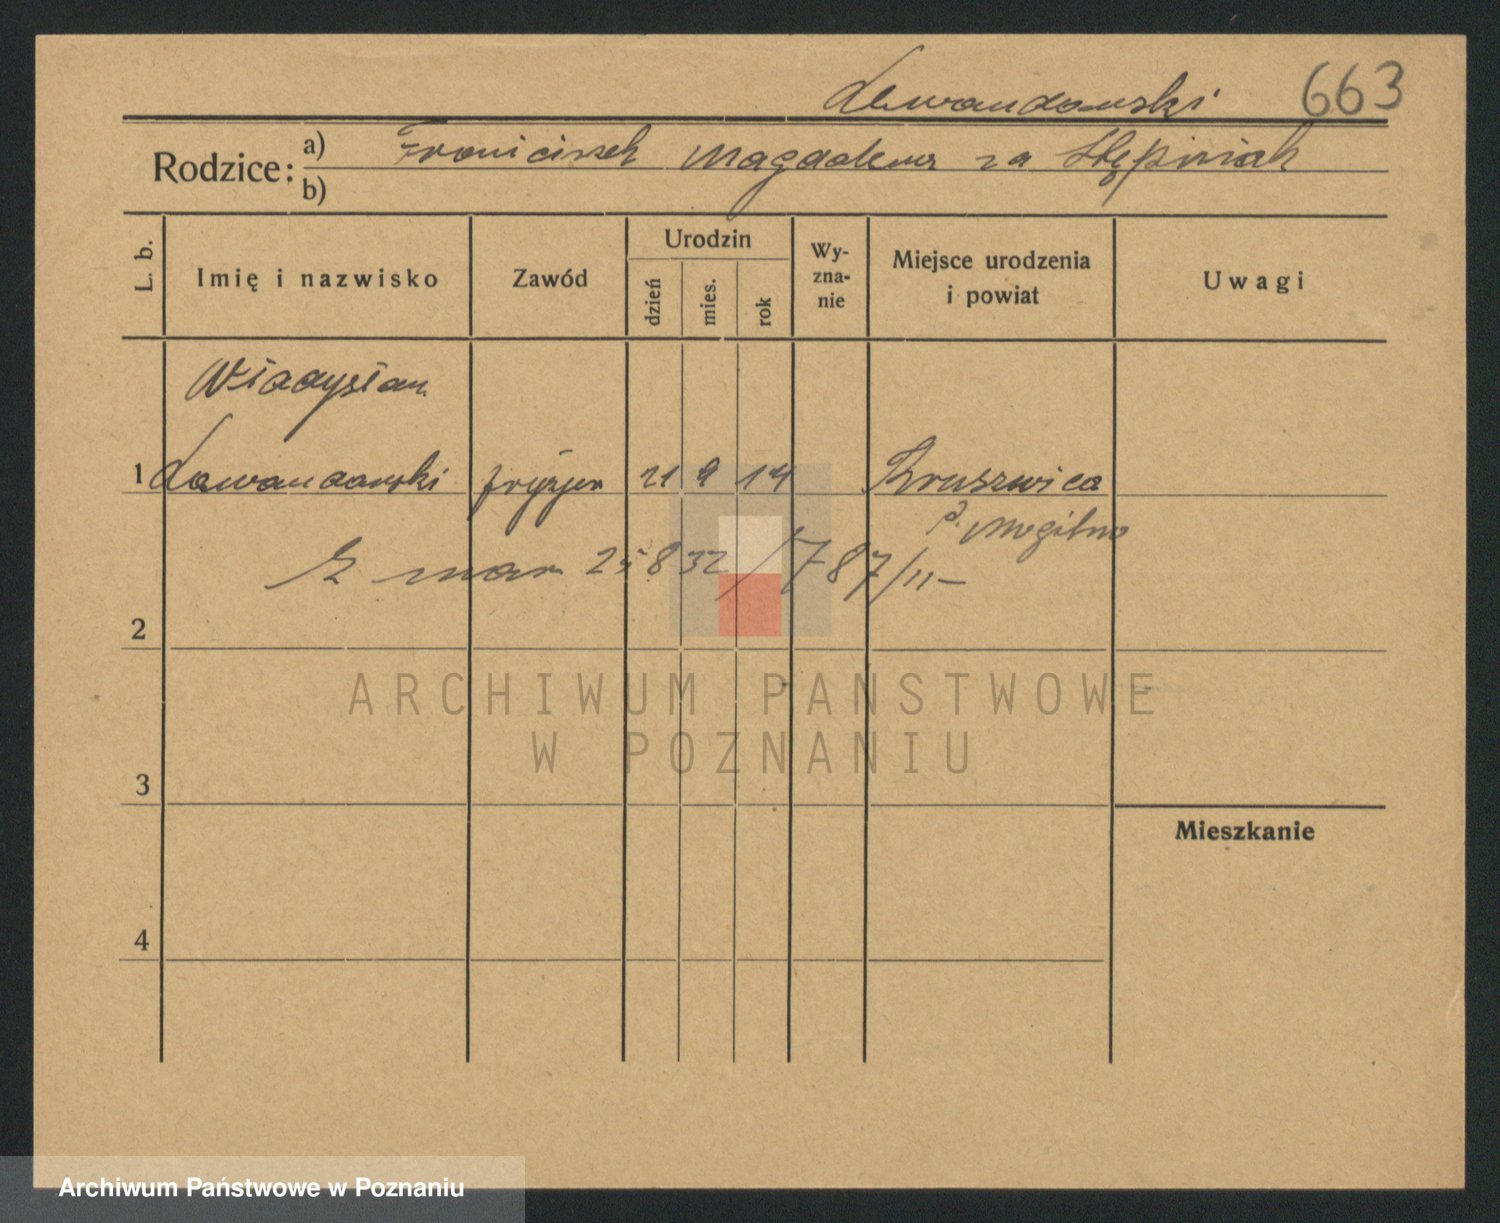 Lewandowski 663
Rodzice: a) Franciszek Magdalena za Stępniak
b)
L. b.
Imię i nazwisko
Zawód
Urodzin
dzień
mies.
rok
Wy-
zna-
nie
Miejsce urodzenia
i powiat
Uwagi
Władysław
1 Lewandowski fryzjer 21 9 14 Kruszwica
p. Mogilno
25 8 32/787/11-
2
3
Mieszkanie
4
ARCHIWUM PAŃSTWOWE
W POZNANIU
Archiwum Państwowe w Poznaniu